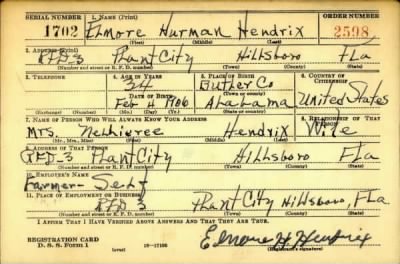 SERIAL NUMBER 1. NAME (Print) ORDER NUMBER
1702 Elmore Hurman Hendrix 2598
(First) (Middle) (Last)
2. ADDRESS (Print)
RFD-3 Plant City Hillsboro Fla
(Number and street or R. F. D. number) (Town) (County) (State)
3. TELEPHONE 4. AGE IN YEARS 5. PLACE OF BIRTH 6. COUNTRY OF CITIZENSHIP
34 Butler Co
DATE OF BIRTH (Town or county)
Feb 4 1906 Alabama United States
(Mo.) (Day) (Yr.) (State or country)
7. NAME OF PERSON WHO WILL ALWAYS KNOW YOUR ADDRESS 8. RELATIONSHIP OF THAT PERSON
Mrs. Hendrix Wife
(Mr., Mrs., Miss) (First) (Middle) (Last)
9. ADDRESS OF THAT PERSON
RFD-3 Plant City Hillsboro Fla
(Number and street or R. F. D. number) (Town) (County) (State)
10. EMPLOYER'S NAME
Farmer - Self
11. PLACE OF EMPLOYMENT OR BUSINESS
RFD 3 Plant City Hillsboro, Fla
(Number and street or R. F. D. number) (Town) (County) (State)
I AFFIRM THAT I HAVE VERIFIED ABOVE ANSWERS AND THAT THEY ARE TRUE.
REGISTRATION CARD Elmore H Hendrix
D. S. S. Form 1 16-17105 (Registrant's signature)